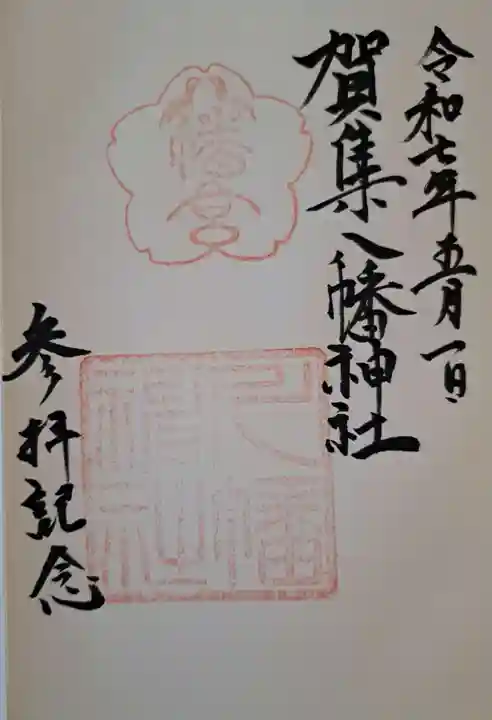 令和七年五月一日
賀集八幡神社
八幡宮
参拝記念